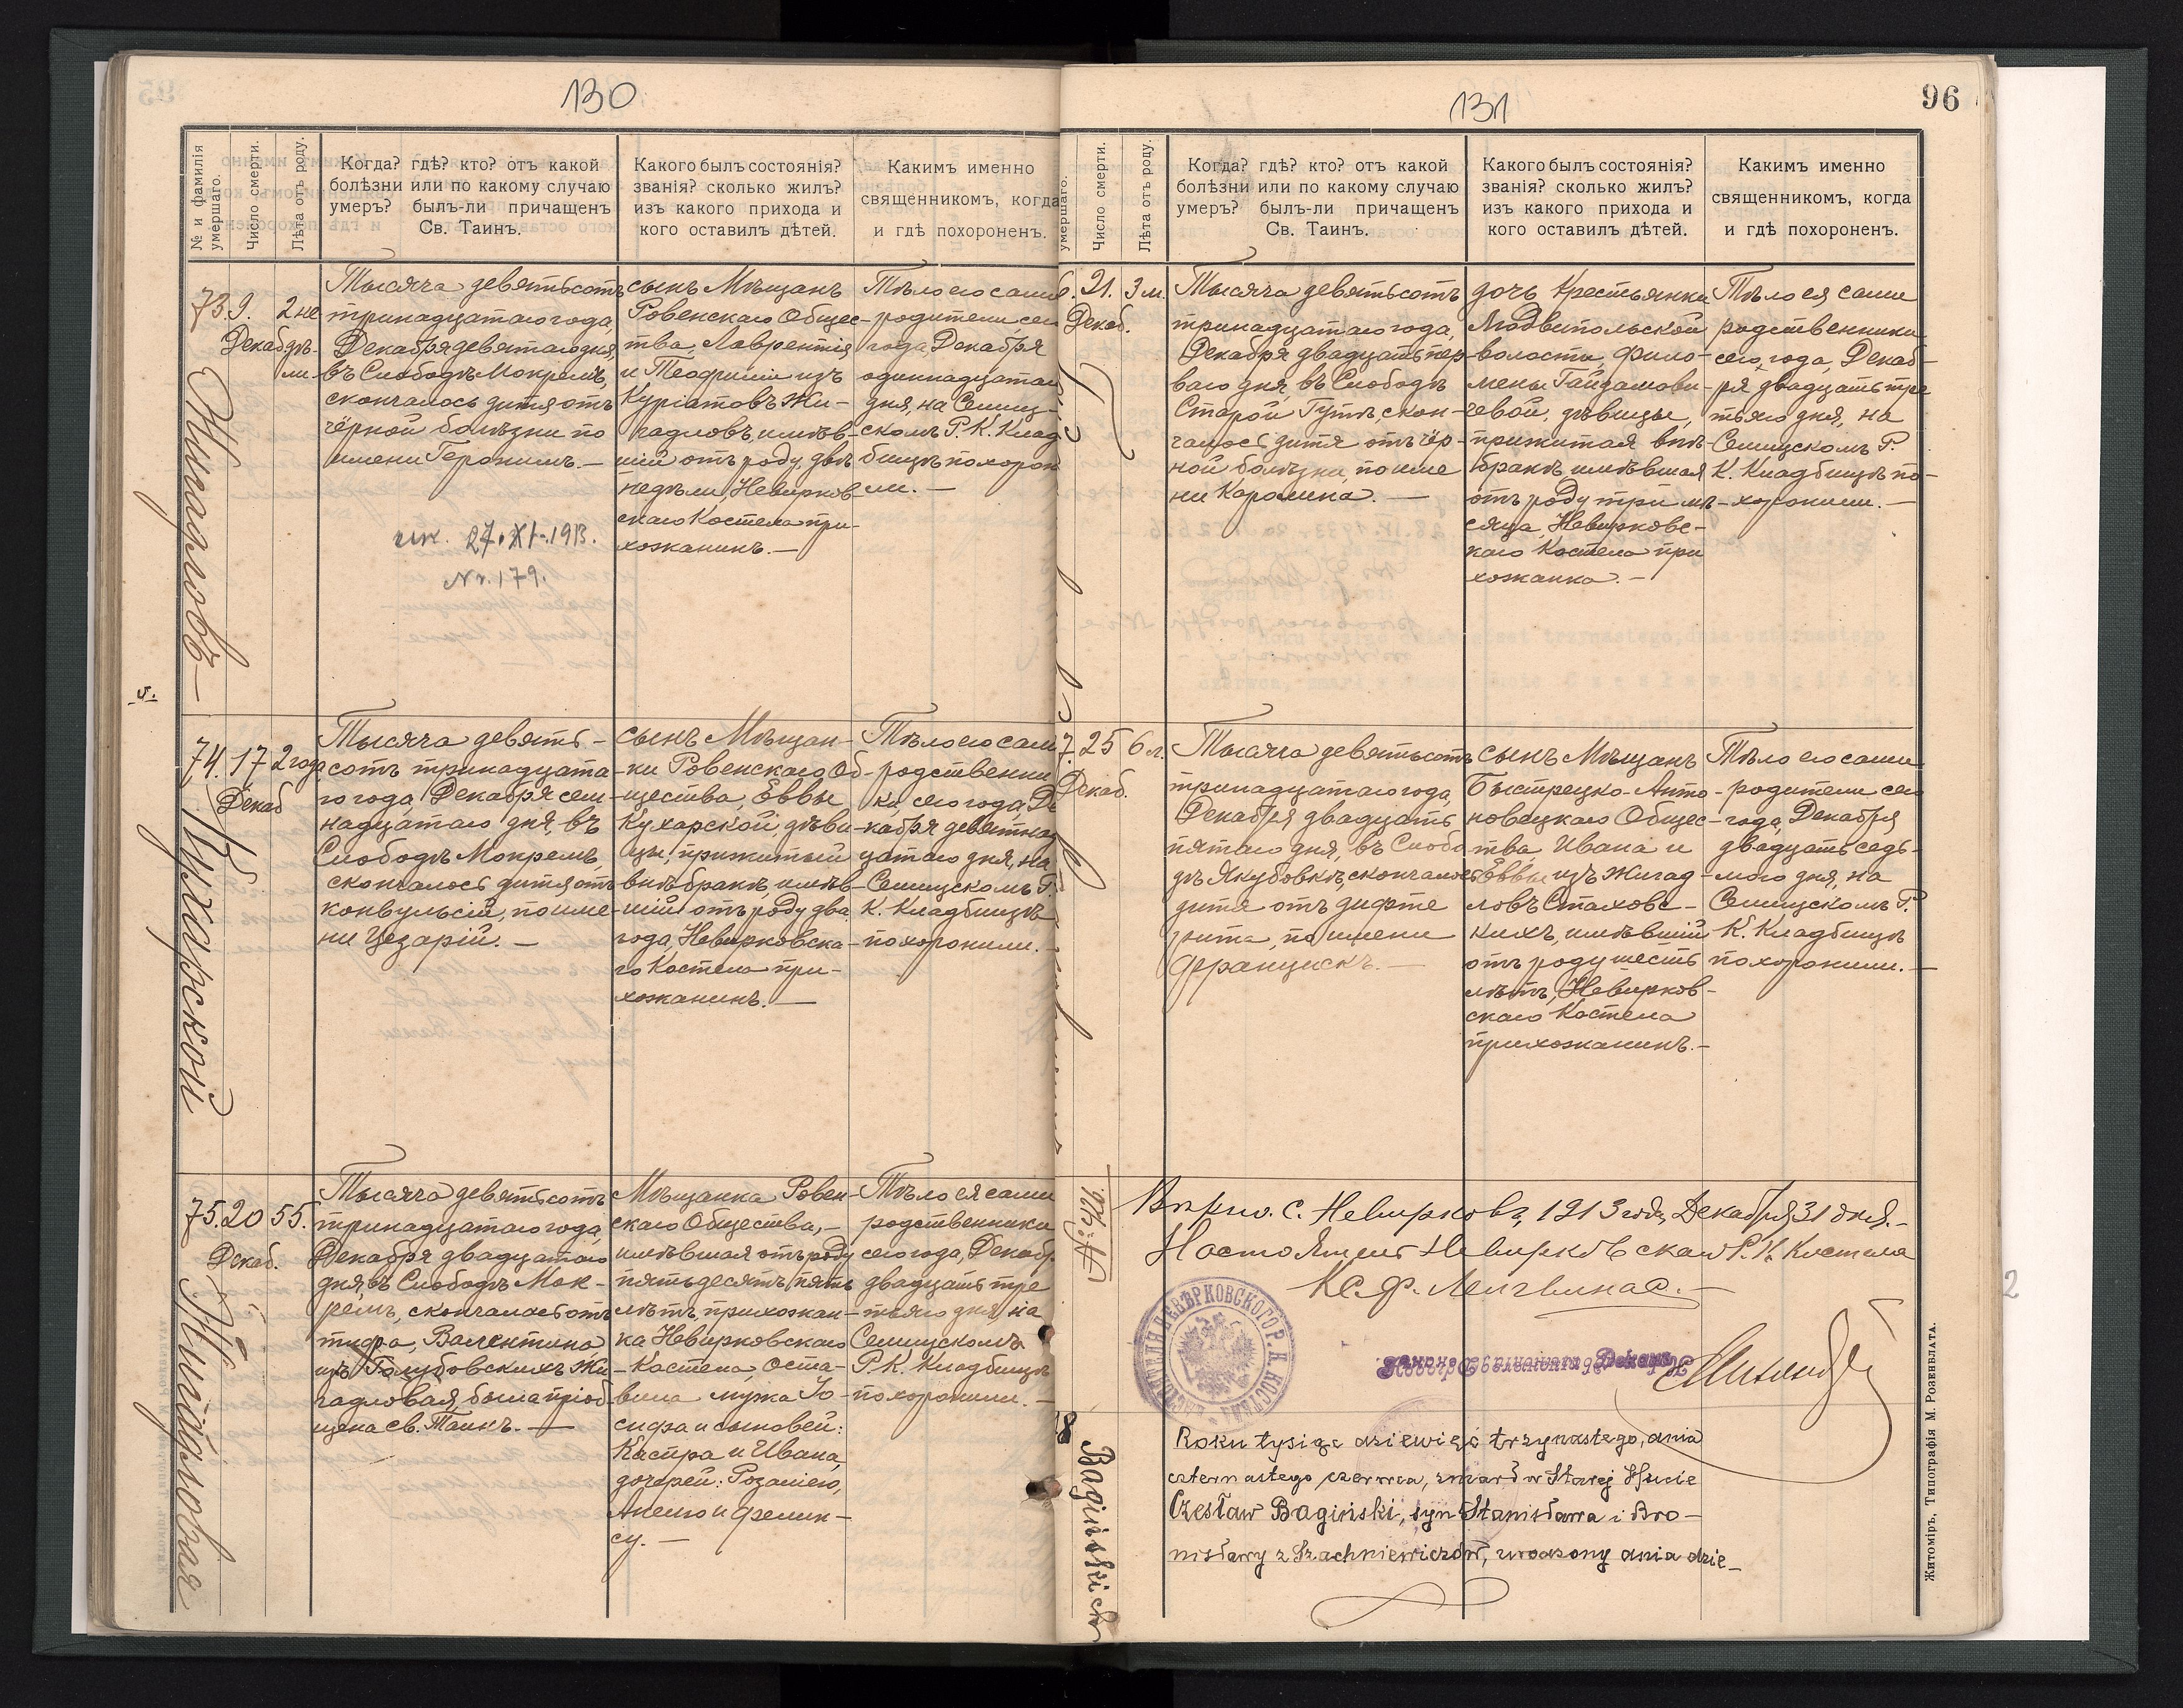 130
№ и фамилія умершаго.
Число смерти.
Лѣта отъ роду.
Когда? гдѣ? кто? отъ какой
болѣзни или по какому случаю
умеръ? былъ-ли причащенъ
Св. Таинъ.
Какого былъ состоянія?
званія? сколько жилъ?
изъ какого прихода и
кого оставилъ дѣтей.
Какимъ именно
священникомъ, когда
и гдѣ похороненъ.
73.
Жигадловъ
9.
Декаб
2 не
дѣ-
ли
Тысяча девятьсотъ
тринадцатаго года,
Декабря девятаго дня,
въ Слободѣ Мокремъ,
скончалось дитя отъ
чёрной болѣзни по
имени Геронимъ. —
ur. 27.XI.1913.
Nr. 179.
сынъ Мѣщанъ
Ровенскаго Общес-
тва, Лаврентія
и Теофиліи изъ
Куріатовъ Жи-
гадловъ, имѣв-
шій отъ роду двѣ
недѣли, Невирков-
скаго Костела при-
хожанинъ. —
Тѣло его сами
родители сего
года Декабря
одиннадцатаго
дня, на Селищ-
скомъ Р. К. Клад
бищѣ похорон
ли. —
74.
Кухарской
17
Декаб
2 года
Тысяча девять-
сотъ тринадцата-
го года, Декабря сем-
надцатаго дня, въ
Слободѣ Мокремъ
скончалось дитя, отъ
конвульсій, по име-
ни Цезарій. —
сынъ Мѣщан-
ки Ровенскаго Об-
щества, Еввы
Кухарской, дѣви-
цы, прижитый
внѣ бракѣ, имѣв-
шій отъ роду два
года, Невирковска-
го Костела при-
хожанинъ. —
Тѣло его сами
родственни
ки, сего года, Де
кабря девятнад
цатаго дня, на
Селищскомъ Р.
К. Кладбищѣ
похоронили. —
75.
Жигадловая
20
Декаб.
55.
Тысяча девятьсотъ
тринадцатаго года,
Декабря двадцатаго
дня, въ Слободѣ Мок-
ремъ, скончалась отъ
тифа, Валентина
изъ Голубовскихъ Жи-
гадловая, была пріоб-
щена св. Таинъ. —
Мѣщанка Ровен-
скаго Общества, —
имѣвшая отъ роду
пятьдесятъ пять
лѣтъ, прихожан-
ка Невирковскаго
Костела, оста-
вила мужа Іо-
сифа и сыновей:
Кастра и Ивана,
дочерей: Розалію,
Анелю и Фелик-
су. —
Тѣло ея сами
родственники
сего года, Декабр.
двадцать тре
тьяго дня, на
Селищскомъ
Р. К. Кладбищѣ
похоронили. —
131
96
умершаго.
Число смерти.
Лѣта отъ роду.
Когда? гдѣ? кто? отъ какой
болѣзни или по какому случаю
умеръ? былъ-ли причащенъ
Св. Таинъ.
Какого былъ состоянія?
званія? сколько жилъ?
изъ какого прихода и
кого оставилъ дѣтей.
Какимъ именно
священникомъ, когда
и гдѣ похороненъ.
6.
21.
Декаб.
3 м.
Тысяча девятьсотъ
тринадцатаго года,
Декабря двадцать пер-
ваго дня, въ Слободѣ
Старой Гутѣ, скон-
чалось дитя отъ чёр-
ной болѣзни, по име
ни Каролина. —
дочь Крестьянки
Людвипольской
волости, Фило-
мены Гайдамови-
чевой, дѣвицы,
прижитая внѣ
бракѣ, имѣвшая
отъ роду три мѣ-
сяца, Невирковс-
каго Костела при
хожанка. —
Тѣло ея сами
родственники
сего года, Декаб-
ря двадцать тре
тьяго дня, на
Селищскомъ Р.
К. Кладбищѣ по-
хоронили. —
7.
25
Декаб.
6 л.
Тысяча девятьсотъ
тринадцатаго года,
Декабря двадцать
пятаго дня, въ Слобо
дѣ Якубовкѣ, скончалось
дитя отъ дифте
рита, по имени
Францискъ. —
сынъ Мѣщанъ
Быстрецко-Анто-
новецкаго Общес-
тва, Ивана и
Еввы изъ Жигад-
ловъ Стаховс-
кихъ, имѣвшій
отъ роду шесть
лѣтъ, Невирков-
скаго Костела
прихожанинъ. —
Тѣло его сами
родители сего
года, Декабря
двадцать седь-
мого дня, на
Селищскомъ Р.
К. Кладбищѣ
похоронили. —
№ 426.
Вѣрно. С. Невирковъ, 1913 года, Декабря 31 дня. —
Настоятель Невирковскаго Р. К. Костела
Кс. Ф.
8
Bagińskich
Roku tysiąc dziewięć trzynastego, dnia
czternastego czerwca, zmarł w Starej Hucie
Czesław Bagiński, syn Stanisława i Bro-
nisławy z Szachniewiczów, urodzony dnia dzie-
Житоміръ, Типографія М. Розенблата.
2